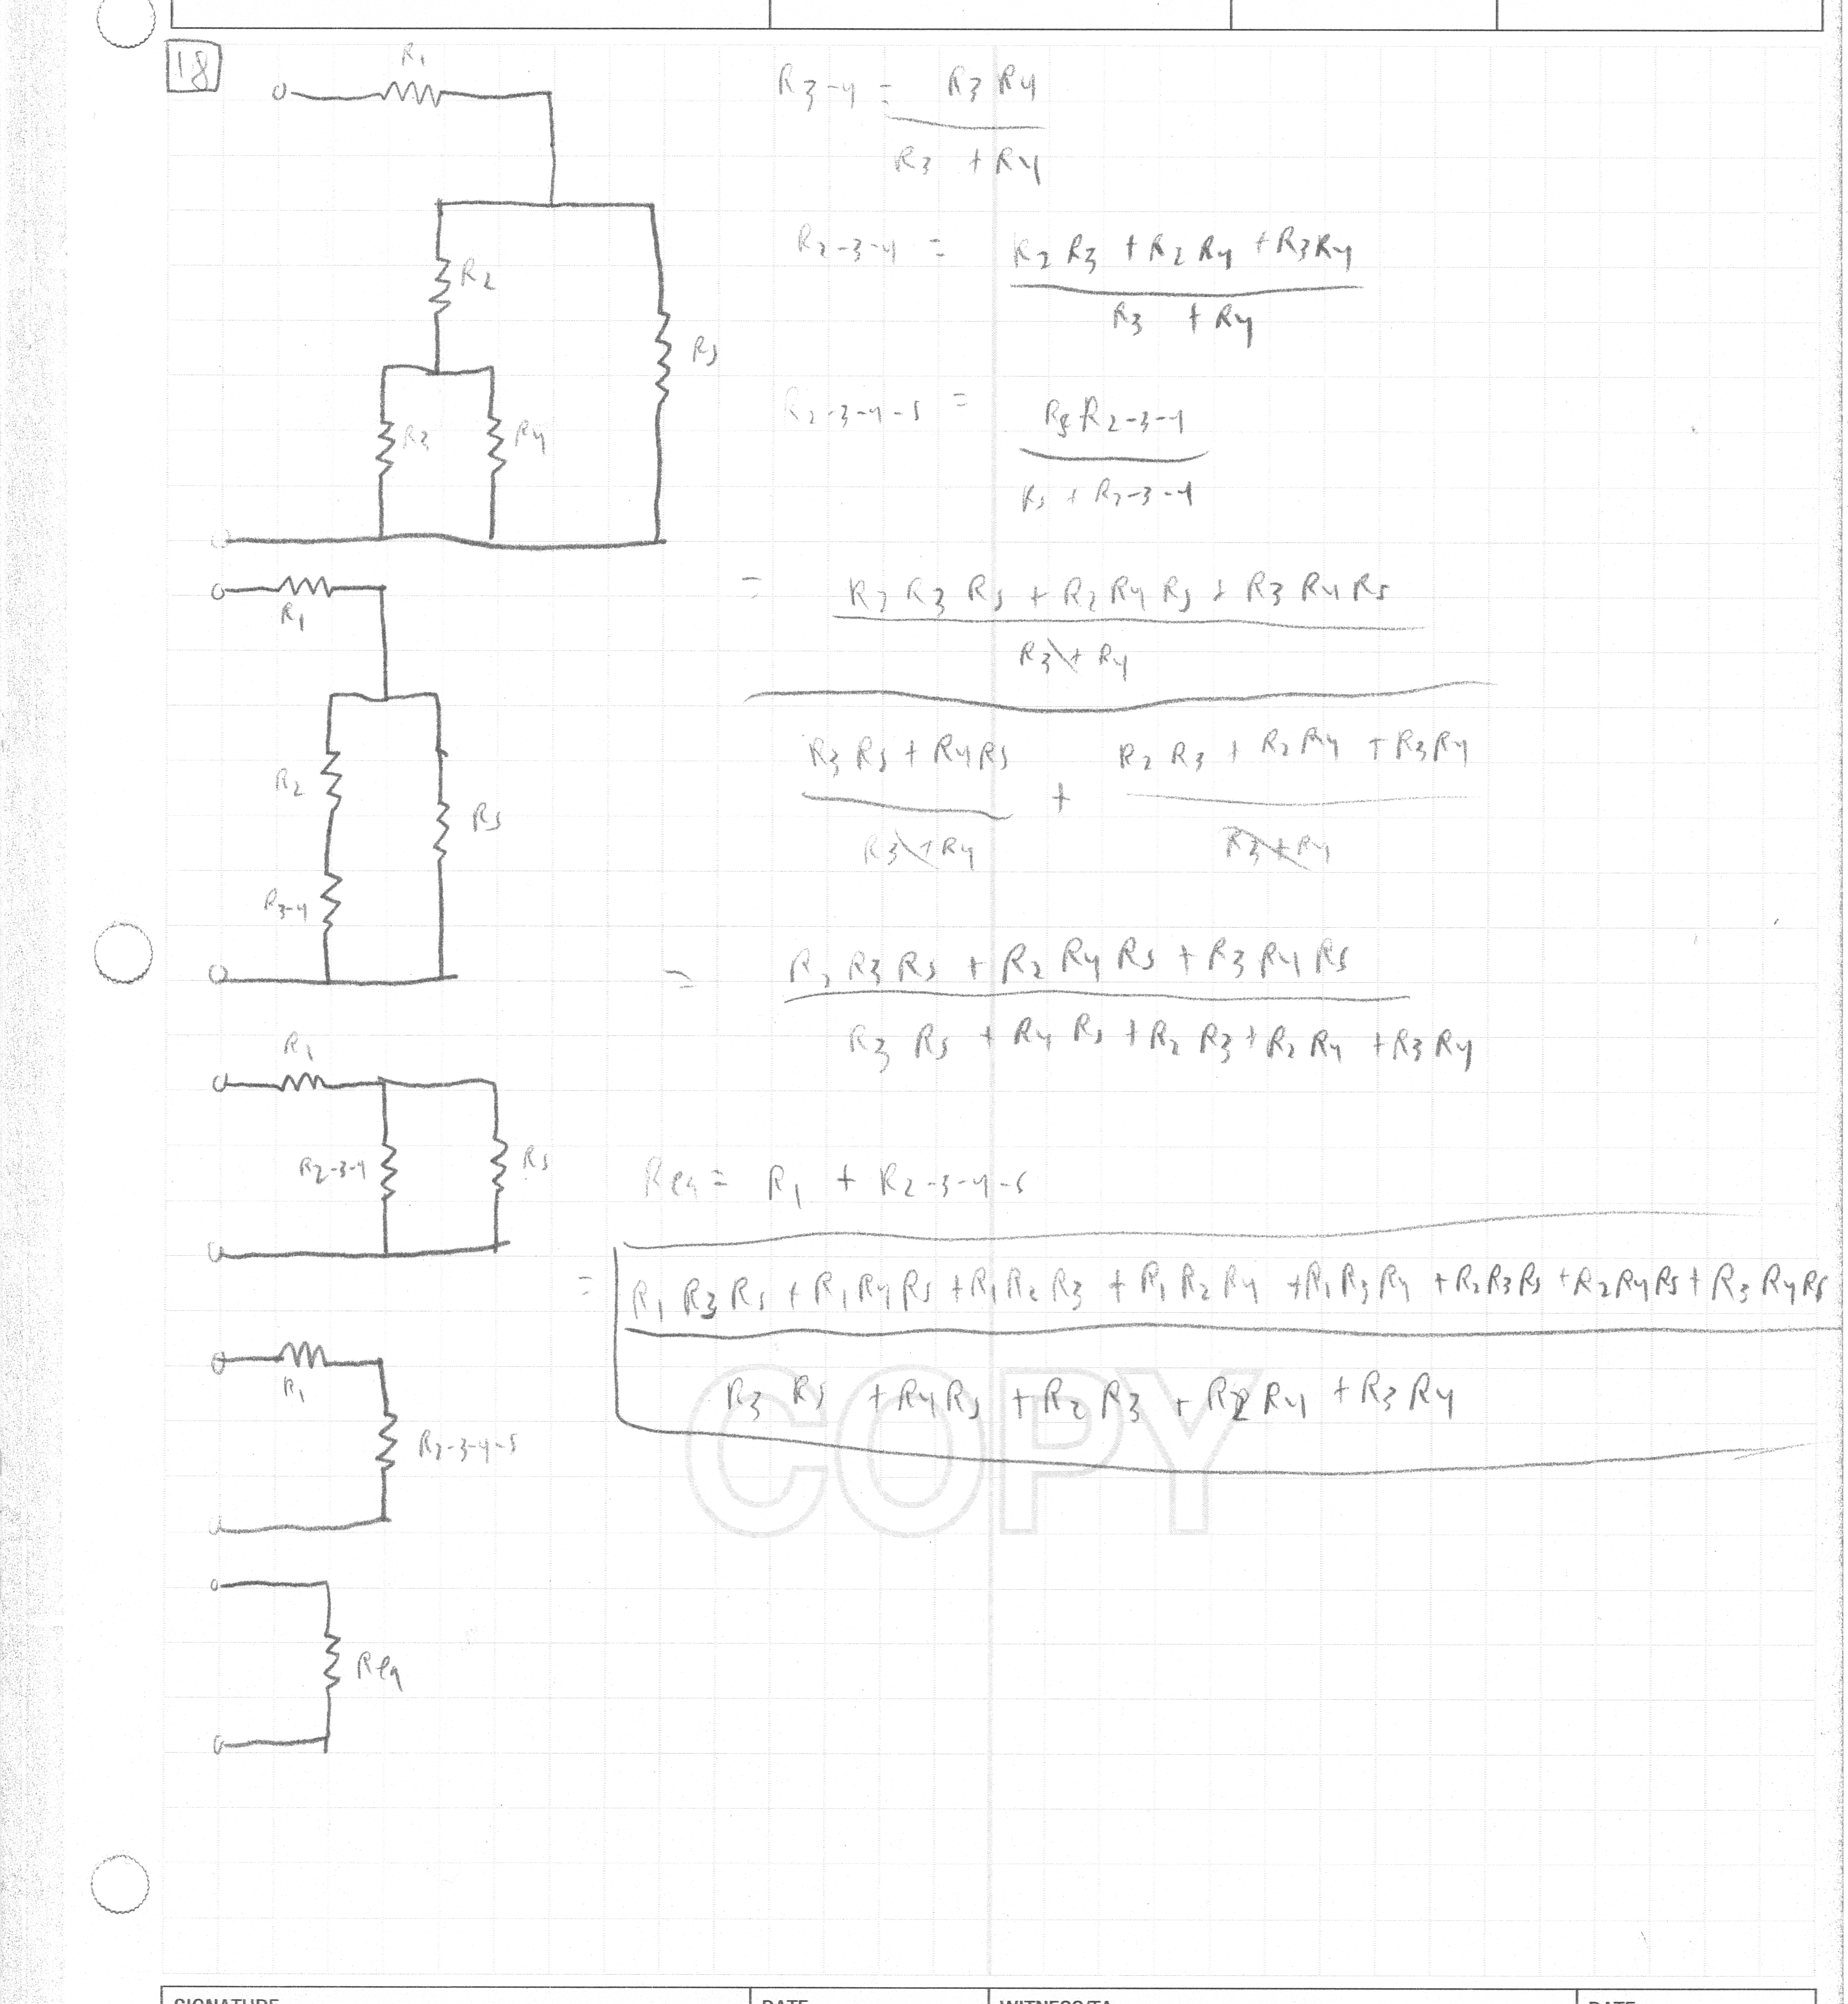 18
R1
R3-4 = R3 R4
R3 + R4
R2-3-4 = R2 R3 + R2 R4 + R3 R4
R3 + R4
R2
R5
R3
R4
R2-3-4-5 = R5 R2-3-4
R5 + R2-3-4
R1
= R2 R3 R5 + R2 R4 R5 + R3 R4 R5
R3 + R4
R3 R5 + R4 R5 + R2 R3 + R2 R4 + R3 R4
R3 + R4
R3 + R4
R2
R5
R3-4
= R2 R3 R5 + R2 R4 R5 + R3 R4 R5
R3 R5 + R4 R5 + R2 R3 + R2 R4 + R3 R4
R1
R2-3-4
R5
Req = R1 + R2-3-4-5
= R1 R3 R5 + R1 R4 R5 + R1 R2 R3 + R1 R2 R4 + R1 R3 R4 + R2 R3 R5 + R2 R4 R5 + R3 R4 R5
R3 R5 + R4 R5 + R2 R3 + R2 R4 + R3 R4
R1
R2-3-4-5
COPY
Req
SIGNATURE
DATE
WITNESS/TA
DATE